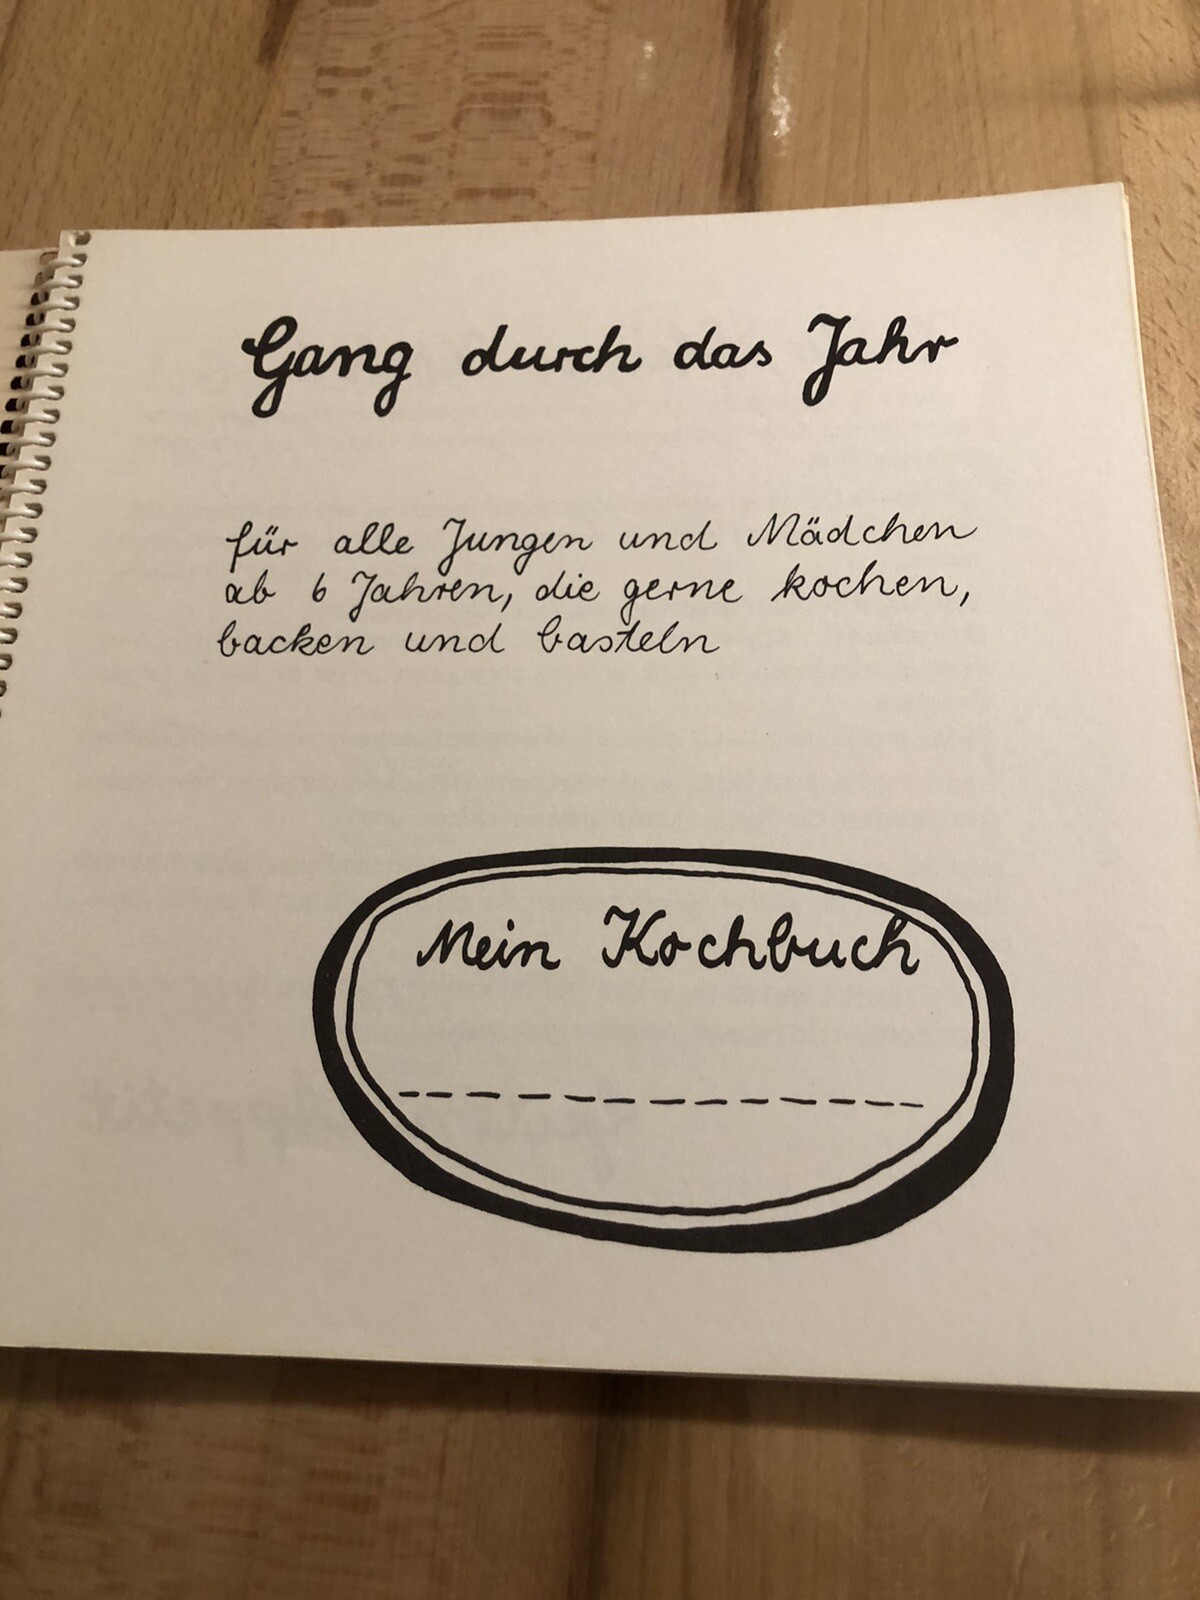 Gang durch das Jahr
für alle Jungen und Mädchen
ab 6 Jahren, die gerne kochen,
backen und basteln
Mein Kochbuch